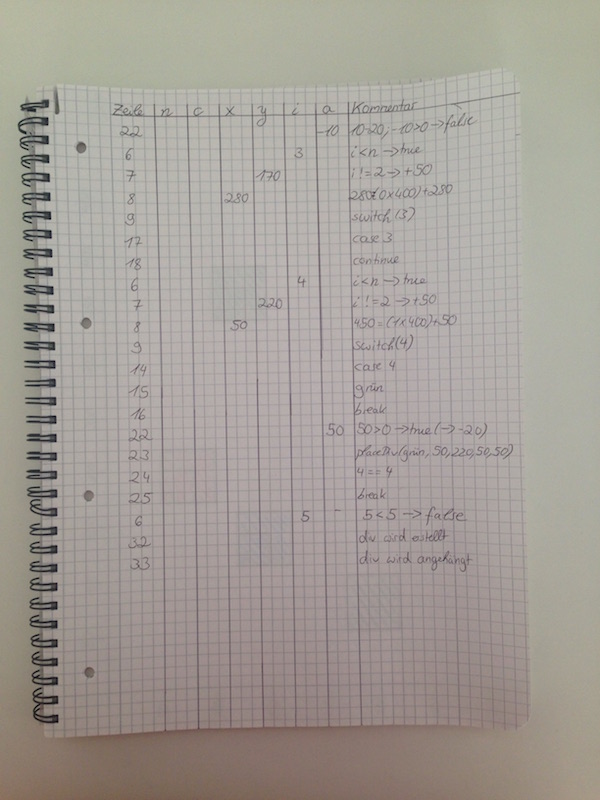 Zeile n c x y i a Kommentar
22 -10 10-20; -10>0 → false
6 3 i<n → true
7 170 i!=2 → +50
8 280 280%(0x400)+280
9 switch(3)
17 case 3
18 continue
6 4 i<n → true
7 220 i!=2 → +50
8 50 450=(1x400)+50
9 switch(4)
14 case 4
15 grün
16 break
22 50 50>0 → true (→ -20)
23 placeDiv(grün, 50,220,50,50)
24 4==4
25 break
6 5 5<5 → false
32 div wird estellt
33 div wird angehängt